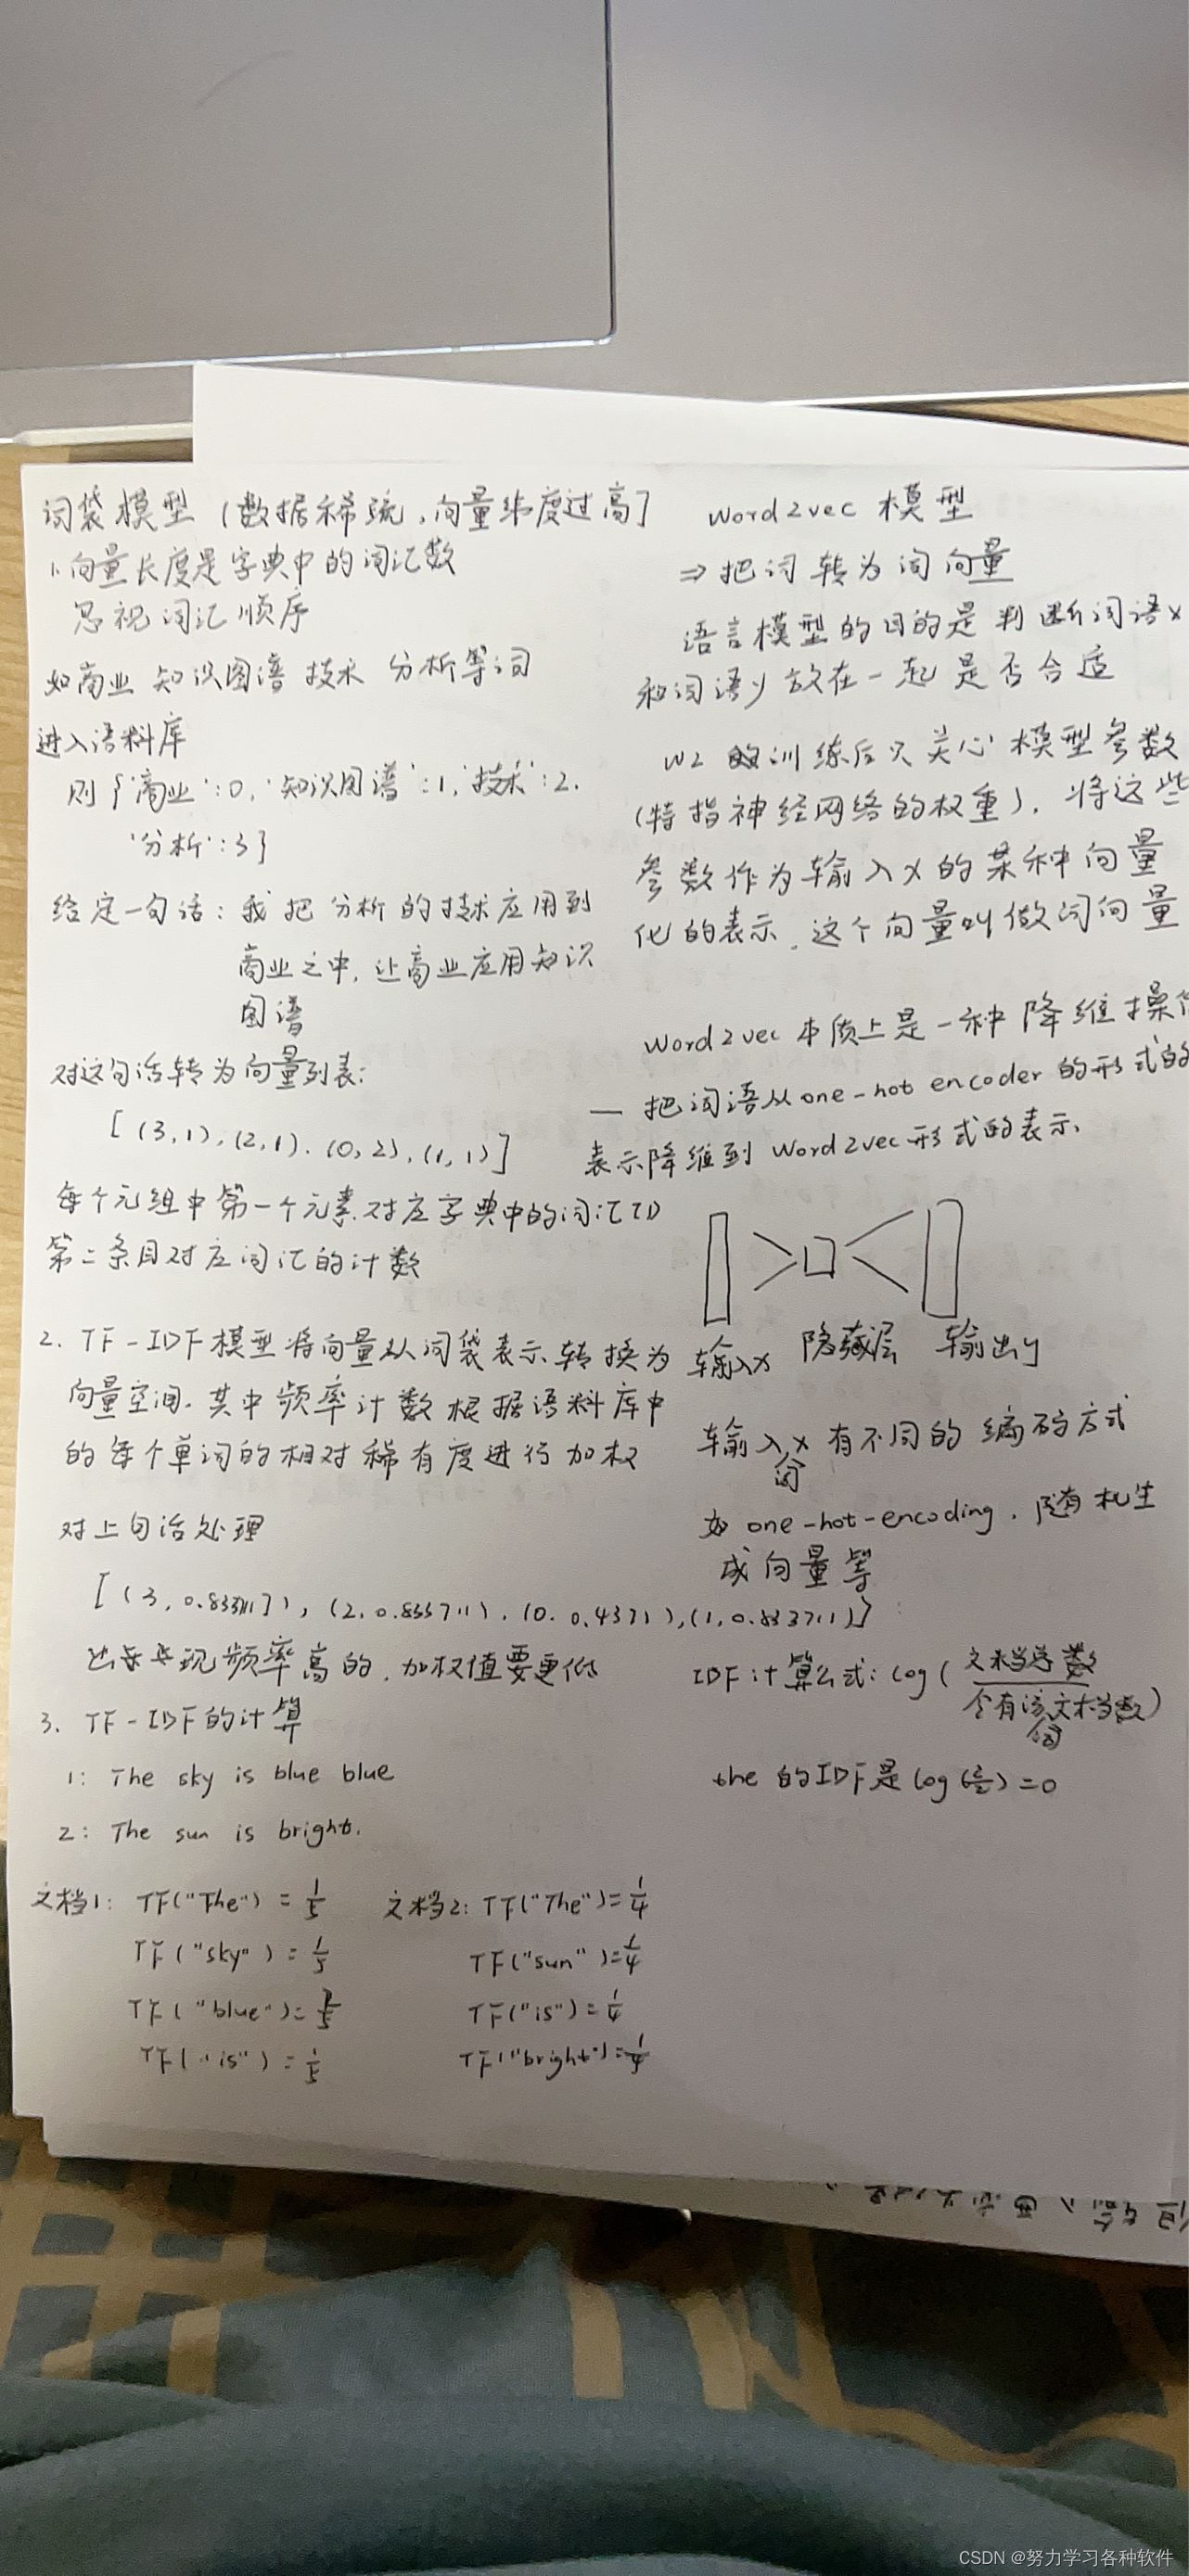 词袋模型 (数据稀疏,向量纬度过高]
1.向量长度是字典中的词汇数
忽视词汇顺序
如商业 知识图谱 技术 分析等词
进入语料库
则{'商业':0,'知识图谱':1,'技术':2.
'分析':3}
给定一句话:我把分析的技术应用到
商业之中,让商业应用知识
图谱
对这句话转为向量列表:
[(3,1),(2,1).(0,2),(1,1)]
每个元组中第一个元素对应字典中的词汇ID
第二条目对应词汇的计数
2. TF-IDF模型将向量从词袋表示转换为
向量空间.其中频率计数根据语料库中
的每个单词的相对稀有度进行加权
对上句话处理
[(3, (2, (0. (1,
出现频率高的,加权值要更低
3. TF-IDF的计算
1: The sky is blue blue
2: The sun is bright.
文档1: TF("The") = 1/5 文档2: TF("The")=1/4
TF("sky") = 1/5 TF("sun")=1/4
TF("blue")=2/5 TF("is")=1/4
TF("is") = 1/5 TF("bright")=1/4
word2vec 模型
⇒把词转为词向量
语言模型的目的是判断词语x
和词语y放在一起是否合适
的训练后只关心模型参数
(特指神经网络的权重),将这些
参数作为输入x的某种向量
化的表示.这个向量叫做词向量
word2vec本质上是一种降维操作
— 把词语从one-hot encoder的形式的
表示降维到Word2vec形式的表示.
输入x 隐藏层 输出y
输入x有不同的编码方式
词
如one-hot-encoding.随机生
成向量等
IDF计算公式:log(文档总数/含有该词文档数)
the的IDF是log(2/2)=0
CSDN @努力学习各种软件